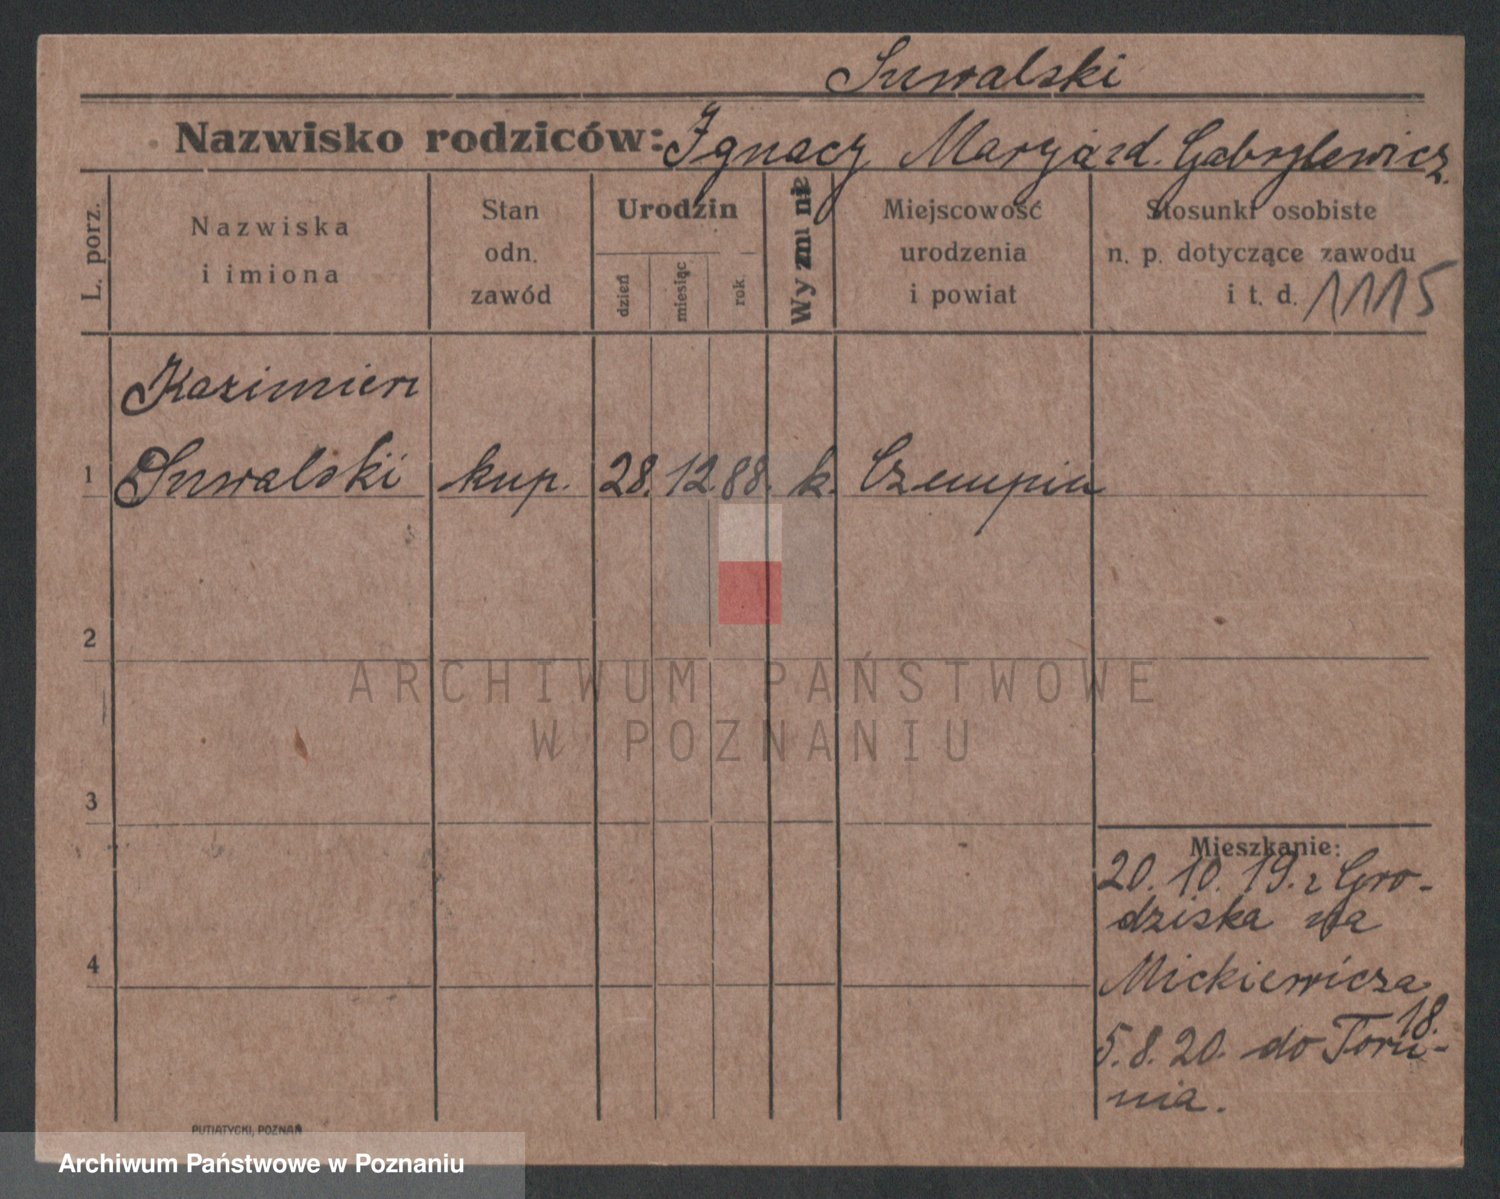 Suwalski
Nazwisko rodziców: Ignacy Marya zd. Gabrylewicz.
L. porz.
Nazwiska
i imiona
Stan
odn.
zawód
Urodzin
dzień
miesiąc
rok.
Wyznanie
Miejscowość
urodzenia
i powiat
Stosunki osobiste
n. p. dotyczące zawodu
i t. d. 1115
Kazimierz
1 Suwalski kup. 28. 12. 88. k. Czempiń
2
3
4
Mieszkanie:
20. 10. 19. z Gro-
dziska na
Mickiewicza
18.
5. 8. 20. do Toru-
nia.
PUTIATYCKI, POZNAŃ
ARCHIWUM PAŃSTWOWE
W POZNANIU
Archiwum Państwowe w Poznaniu